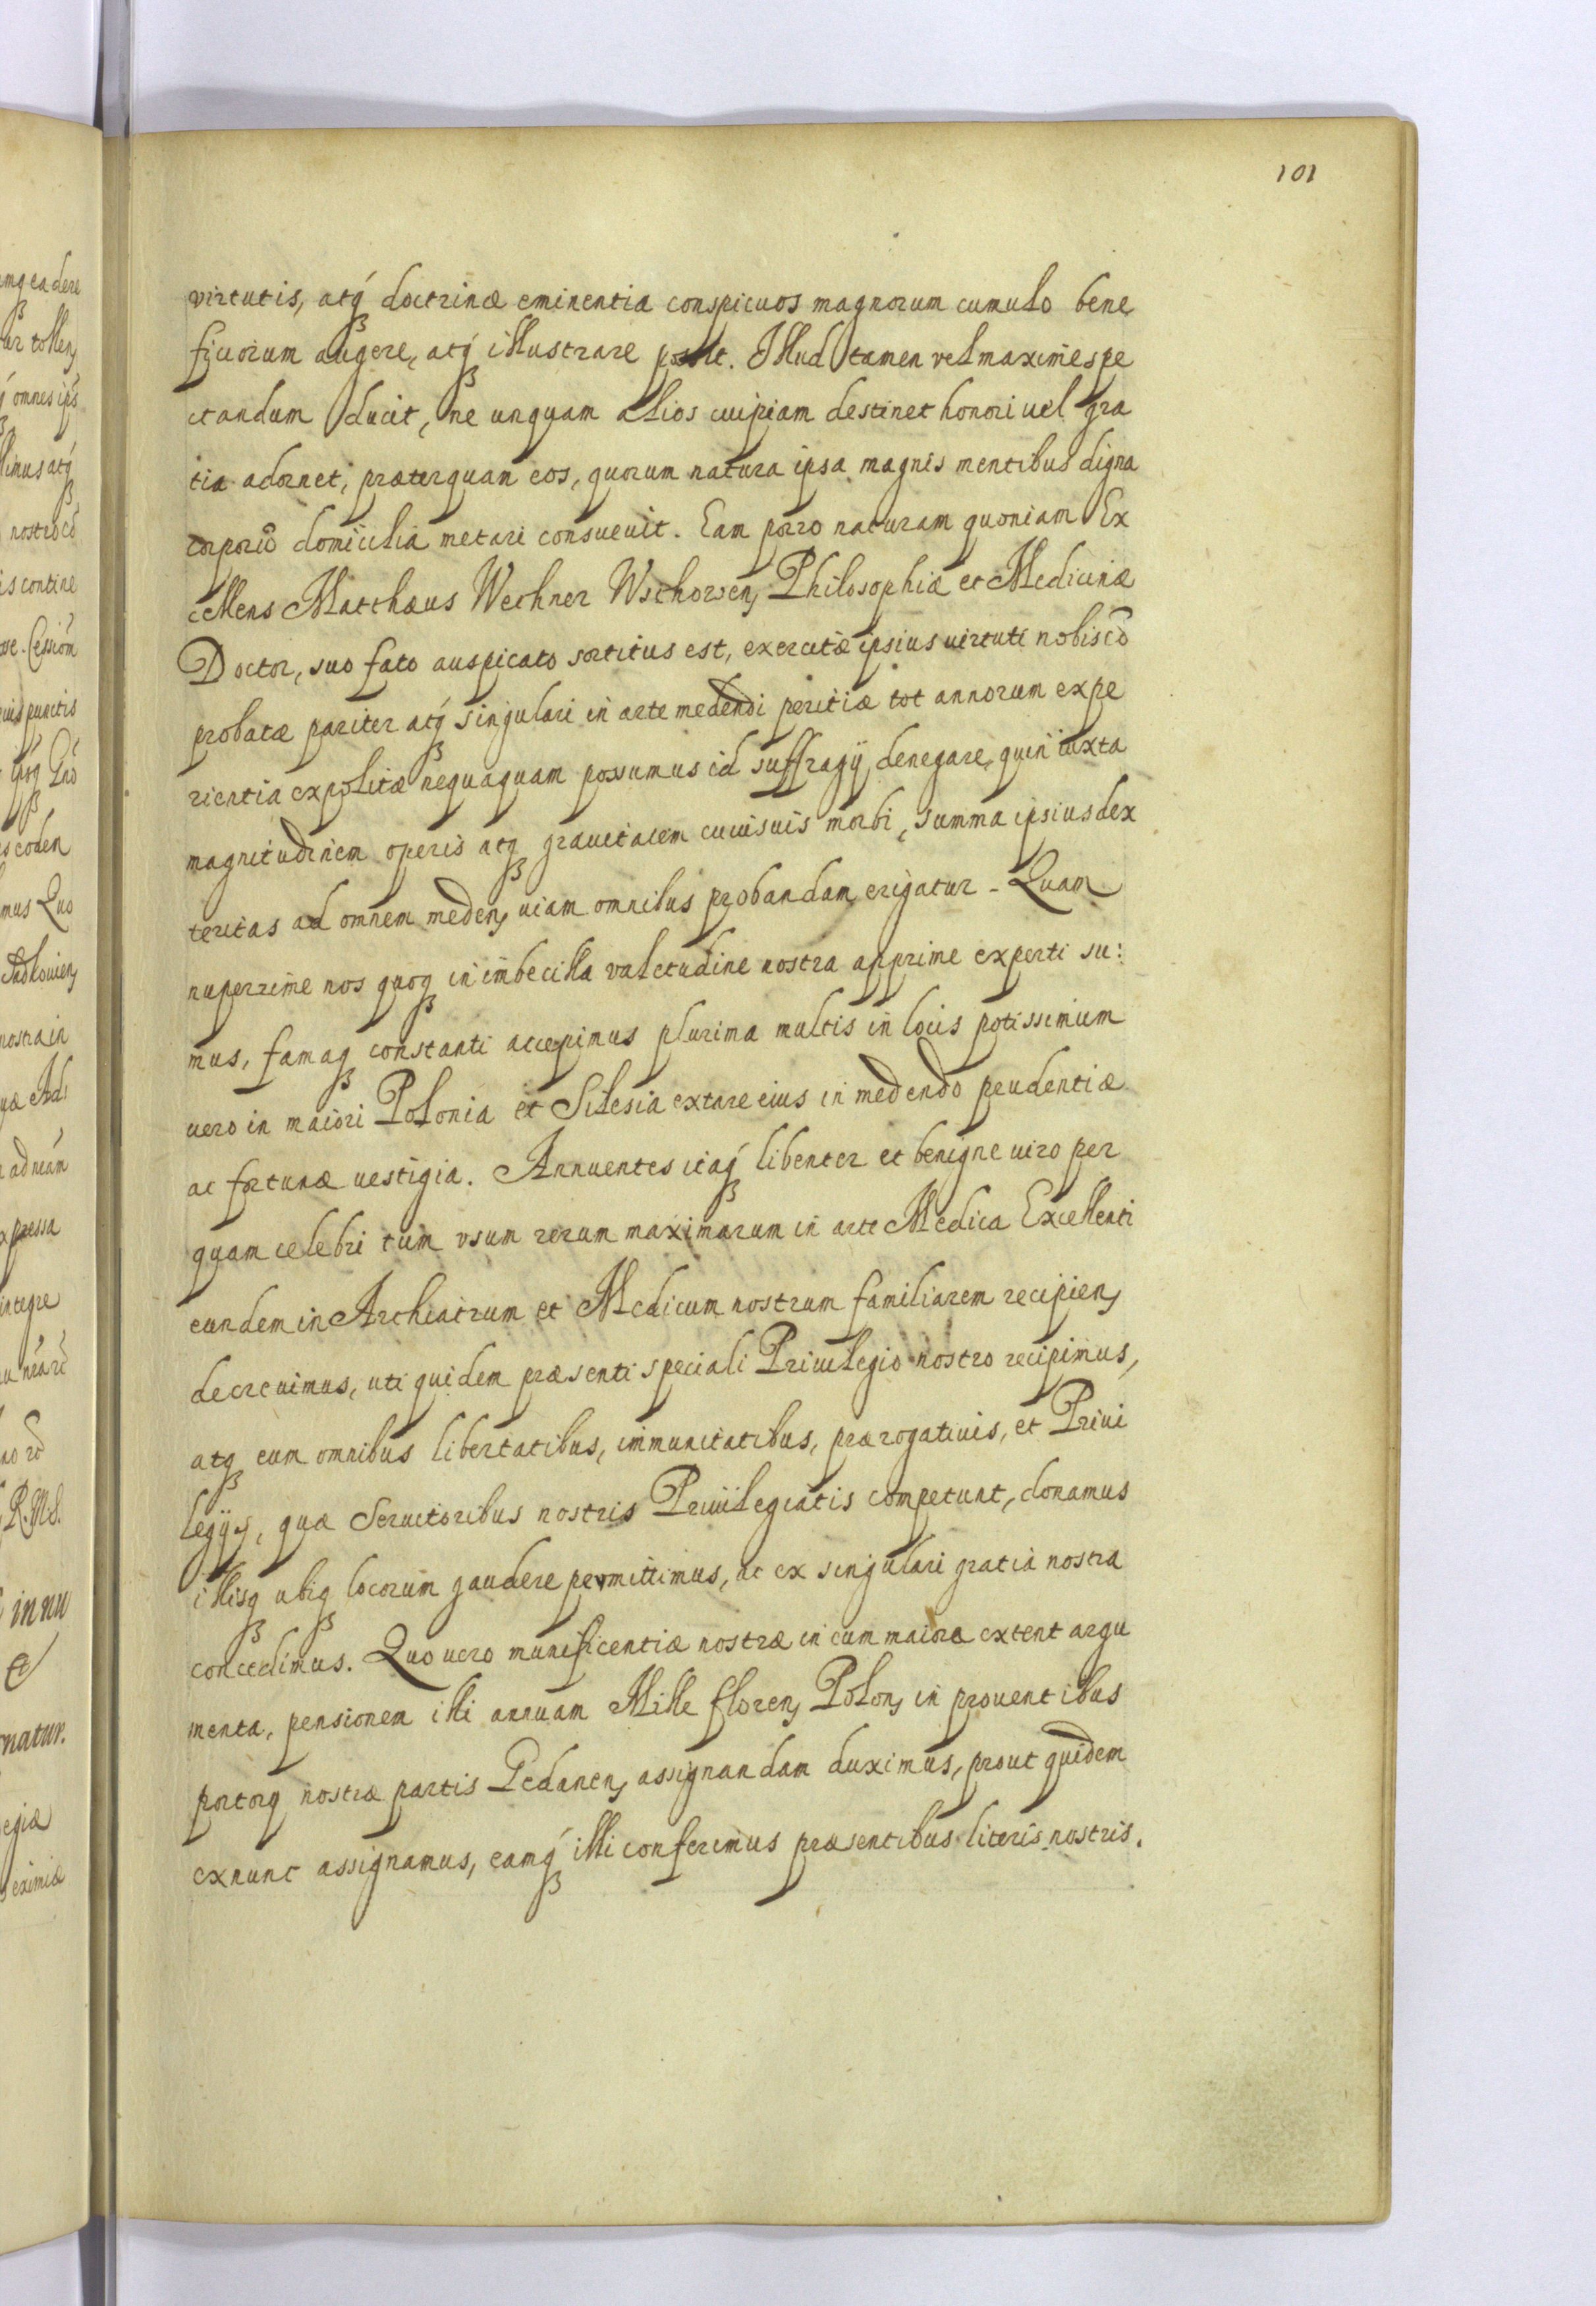 101
virtutis, atq́ doctrinæ eminentia conspicuos magnorum cumulo bene
ficiorum augere, atq́ illustrare possit. Illud tamen vel maxime spe
ctandum ducit, ne unquam alios cuipiam destinet honori uel gra
tia adornet, præterquam eos, quorum natura ipsa magnis mentibus digna
corporũ domicilia metari consueuit. Eam porro naturam quoniam Ex
cellens Matthæus Wechner Wschowen, Philosophiæ et Medicinæ
Doctor, suo fato auspicato sortitus est, exercitæ ipsius uirtuti nobiscũ
probatæ pariter atq́ singulari in arte medendi peritiæ tot annorum expe
rientia expolitæ nequaquam possumus id suffragij denegare, quin iuxta
magnitudinem operis atq grauitatem cuiusuis morbi, summa ipsius dex
teritas ad omnem meden, uiam omnibus probandam erigatur. Quam
nuperrime nos quoq in imbecilla valetudine nostra apprime experti su:
mus, famaq constanti accepimus plurima multis in locis potissimum
uero in maiori Polonia et Silesia extare eius in medendo prudentiæ
ac fortunæ uestigia. Annuentes itaq́ libenter et benigne uiro per
quam celebri tum vsum rerum maximarum in arte Medica Excellenti
eundem in Archiatrum et Medicum nostrum familiarem recipien,
decreuimus, uti quidem præsenti speciali Priuilegio nostro recipimus,
atq eum omnibus libertatibus, immunitatibus, prærogatiuis, et Priui
legijs, quæ Seruitoribus nostris Priuilegiatis competunt, donamus
illisq ubiq locorum gaudere permittimus, ac ex singulari gratia nostra
concedimus. Quo uero munificentiæ nostræ in eum maiora extent argu
menta, pensionem illi annuam Mille floren, Polon, in prouentibus
portorq nostræ partis Gedanen, assignandam duximus, prout quidem
exnunc assignamus, eamq́ illi conferimus præsentibus literis nostris.